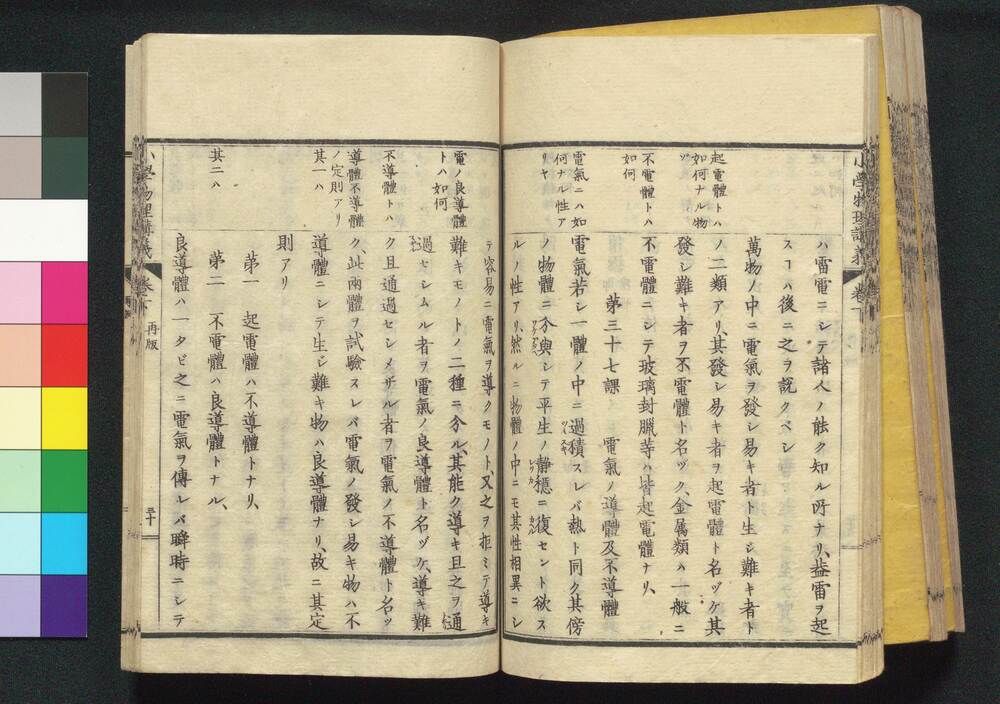 小學物理講義 卷下
起電體トハ
如何ナル物
ゾ
不電體トハ
如何
電氣ニハ如
何ナル性ア
リヤ
ハ雷電ニシテ諸人ノ能ク知ル所ナリ、蓋雷ヲ起
スヿハ後ニ之ヲ説クベシ
萬物ノ中ニ電氣ヲ發シ易キ者ト生シ難キ者ト
ノ二類アリ、其發シ易キ者ヲ起電體ト名ヅケ其
發シ難キ者ヲ不電體ト名ヅク、金属類ハ一般ニ
不電體ニシテ玻璃封臘等ハ皆起電體ナリ、
第三十七課 電氣ノ導體及不導體
電氣若シ一體ノ中ニ過積スレバ熱ト同ク其傍
ノ物體ニ分與シテ平生ノ静穏ニ復セント欲ス
ルノ性アリ、然ルニ物體ノ中ニモ其性相異ニシ
電ノ良導體
トハ如何
不導體トハ
導體不導體
ノ定則アリ
其一ハ
其二ハ
テ容易ニ電氣ヲ導クモノト、又之ヲ拒ミテ導キ
難キモノトノ二種ニ分ル、其能ク導キ且之ヲ通
過セシムル者ヲ電氣ノ良導體ト名ヅケ、導キ難
ク且通過セシメザル者ヲ電氣ノ不導體ト名ヅ
ク、此兩體ヲ試驗スレバ電氣ノ發シ易キ物ハ不
導體ニシテ生シ難キ物ハ良導體ナリ、故ニ其定
則アリ
第一 起電體ハ不導體トナリ、
第二 不電體ハ良導體トナル、
良導體ハ一タビ之ニ電氣ヲ傳レバ瞬時ニシテ
小學物理講義 卷下 再版 五十